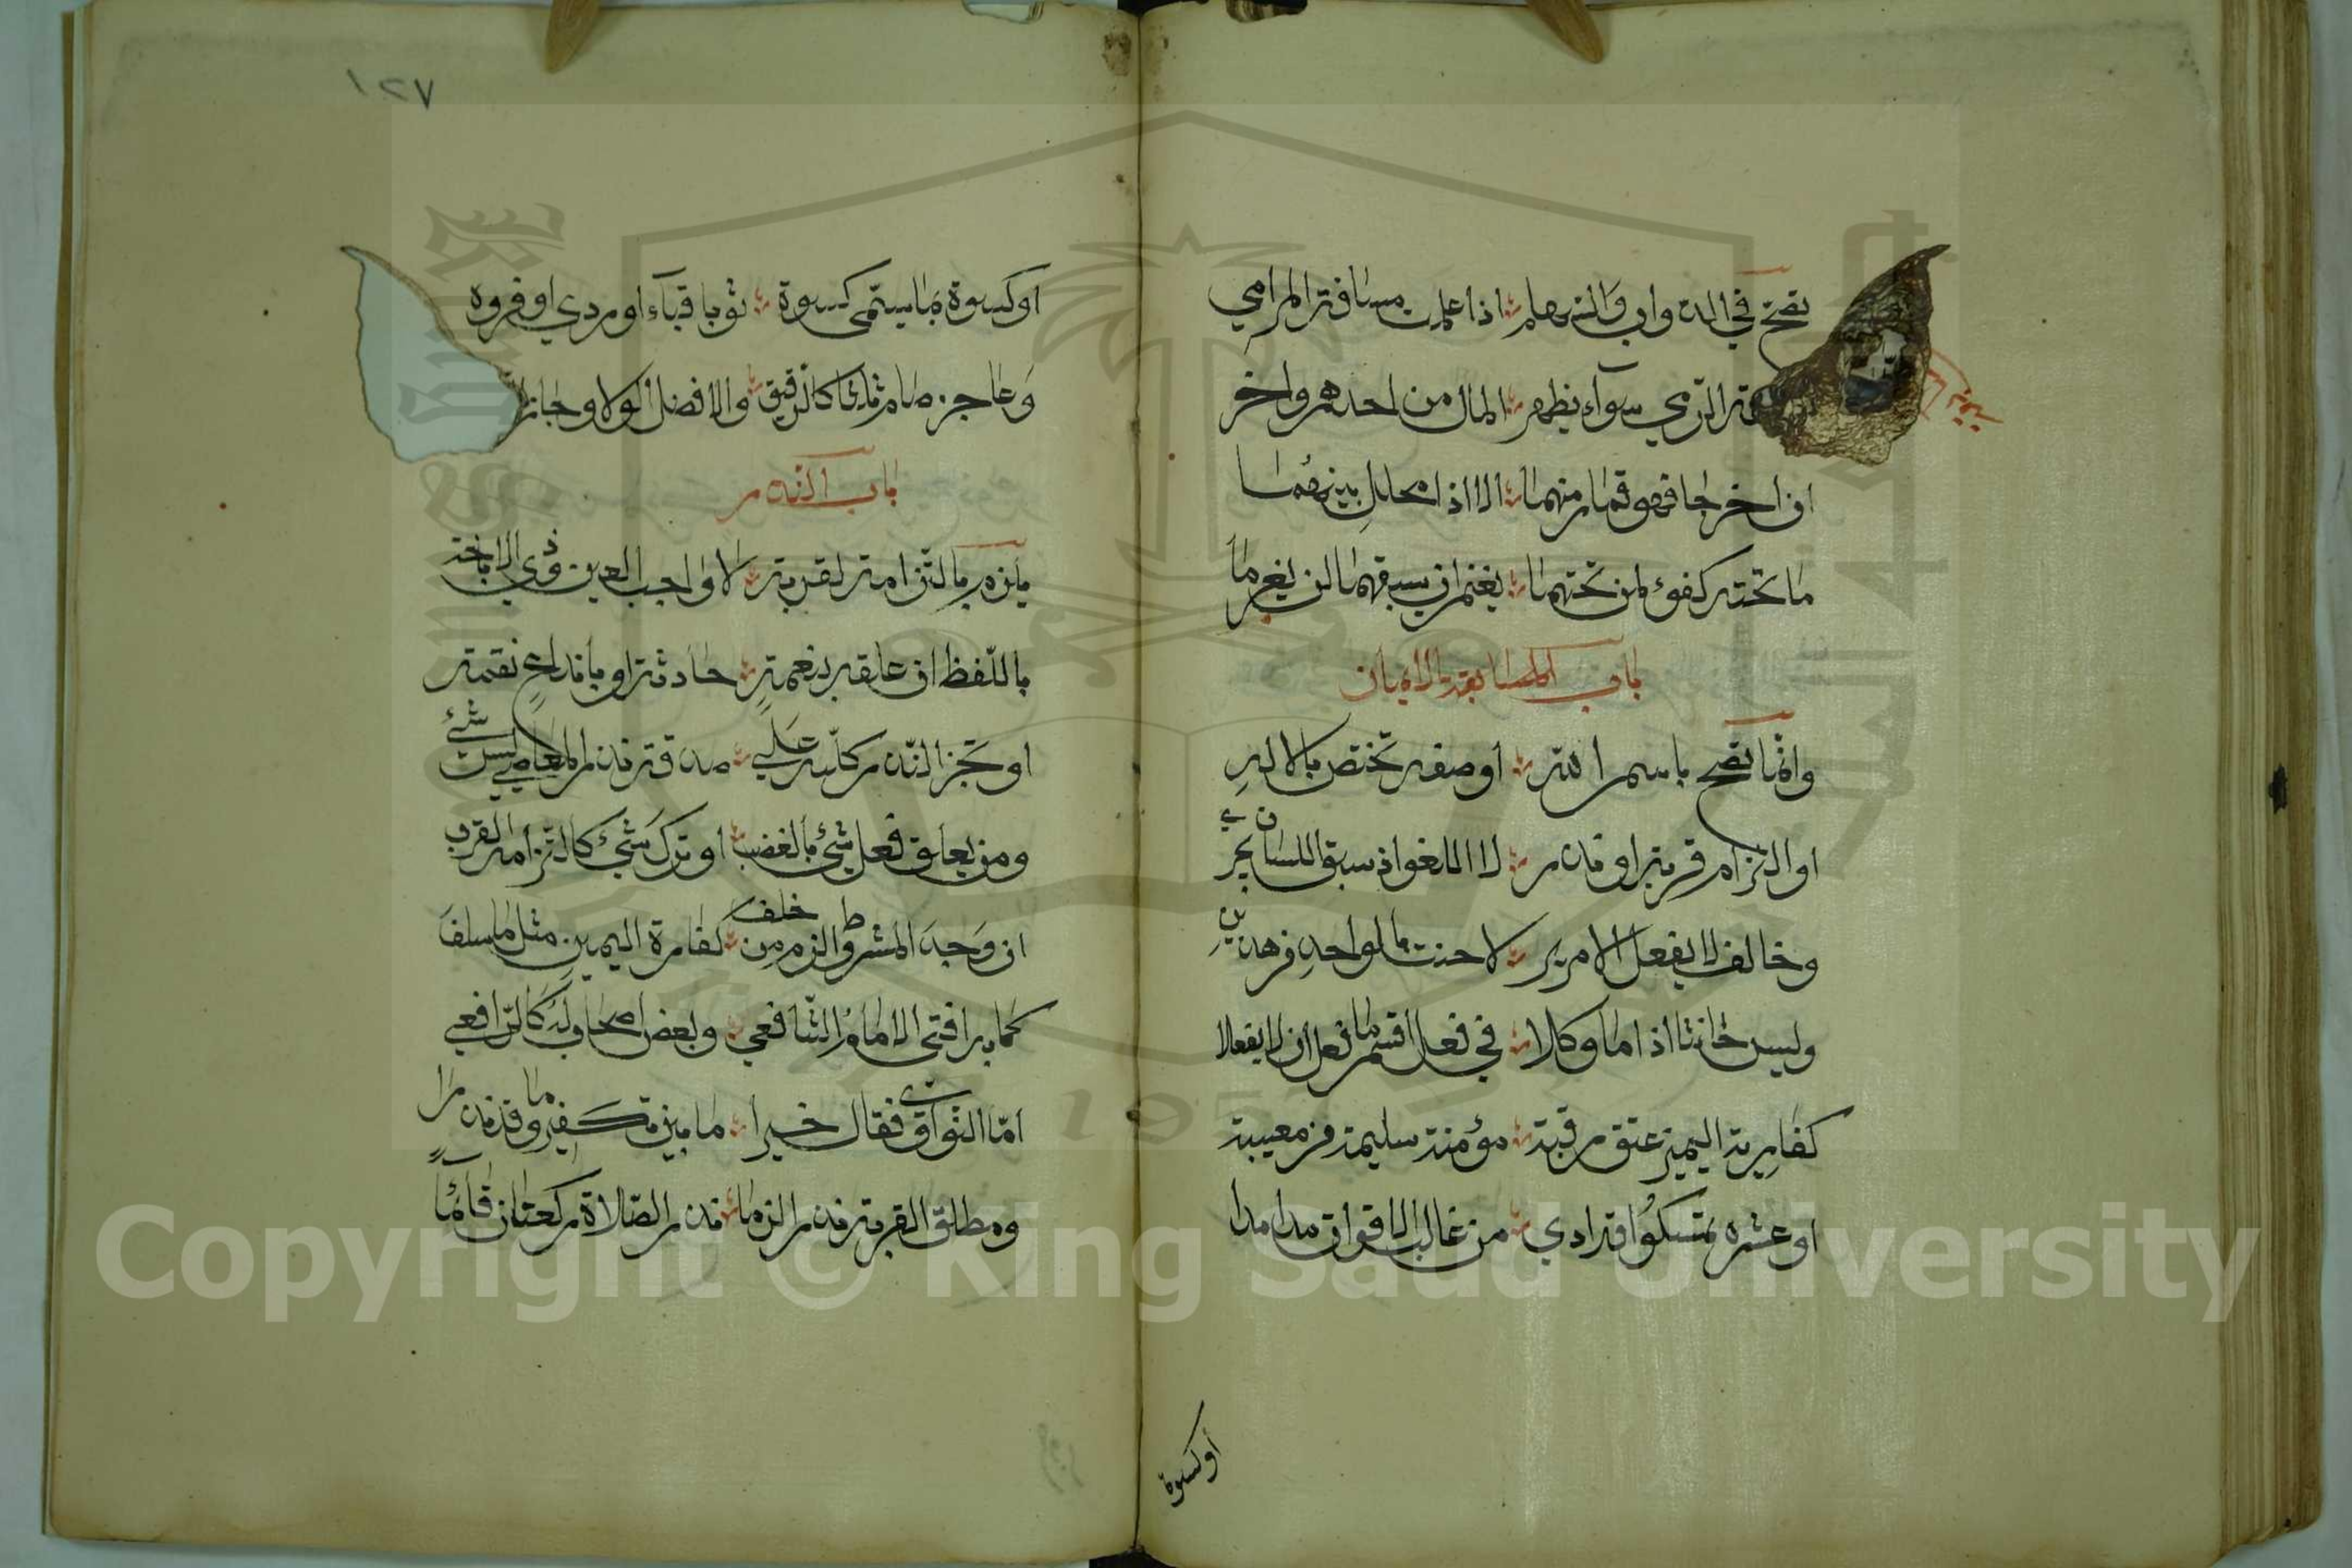 تصح في الدواب والسهام ؞ اذا علمت مسافة المرامي
الرمي سواء يظهر ؞ المال من احدهم واخر
ان اخرجا فهو قمار منهما ؞ الا اذا محلل بينهما
ما تحته كفؤ لمن تحتهما ؞ يغنم ان يسبقهما لن يغرما
باب الايمان
وانما تصح باسم الله ؞ او صفة تختص بالاله
او التزام قربة او نذر ؞ لا اللغو اذ سبق اللسان يجري
وخالف لا يفعل الامرين ؞ لا حنث بالواحد من هذين
وليس حانثا اذا ما وكلا ؞ في فعل ما اقسم ان لا يفعلا
كفارة اليمين عتق رقبة ؞ مؤمنة سليمة من معيبة
او عشرة تمسكنوا قد ادي ؞ من غالب الاقوات مدا مدا
أو كسوة
١٢٧
او كسوة بما يسمى كسوة ؞ ثوبا قباء او ردي او فروه
وعاجز صام ثلاثا كالرقيق ؞ والافضل الولا وجاز
باب النذر
يلزم بالتزامه لقربة ؞ لا واجب العين وذي الاباحة
باللفظ ان علقه بنعمة ؞ حادثة او باندفاع نقمة
او نجز النذر كلله علي ؞ صدقة نذر المعاصي ليس شئ
ومن يعلق فعل شئ بالغضب ؞ او ترك شئ كالتزامه القرب
ان وجد المشروط الزم من خلف ؞ كفارة اليمين مثل ما سلف
كما به افتى الامام الشافعي ؞ وبعض اصحاب له كالرافعي
اما النواوي فقال خيرا ؞ ما بين تكفير وما قد نذرا
ومطلق القربة نذر الزما ؞ نذر الصلاة ركعتان قائما